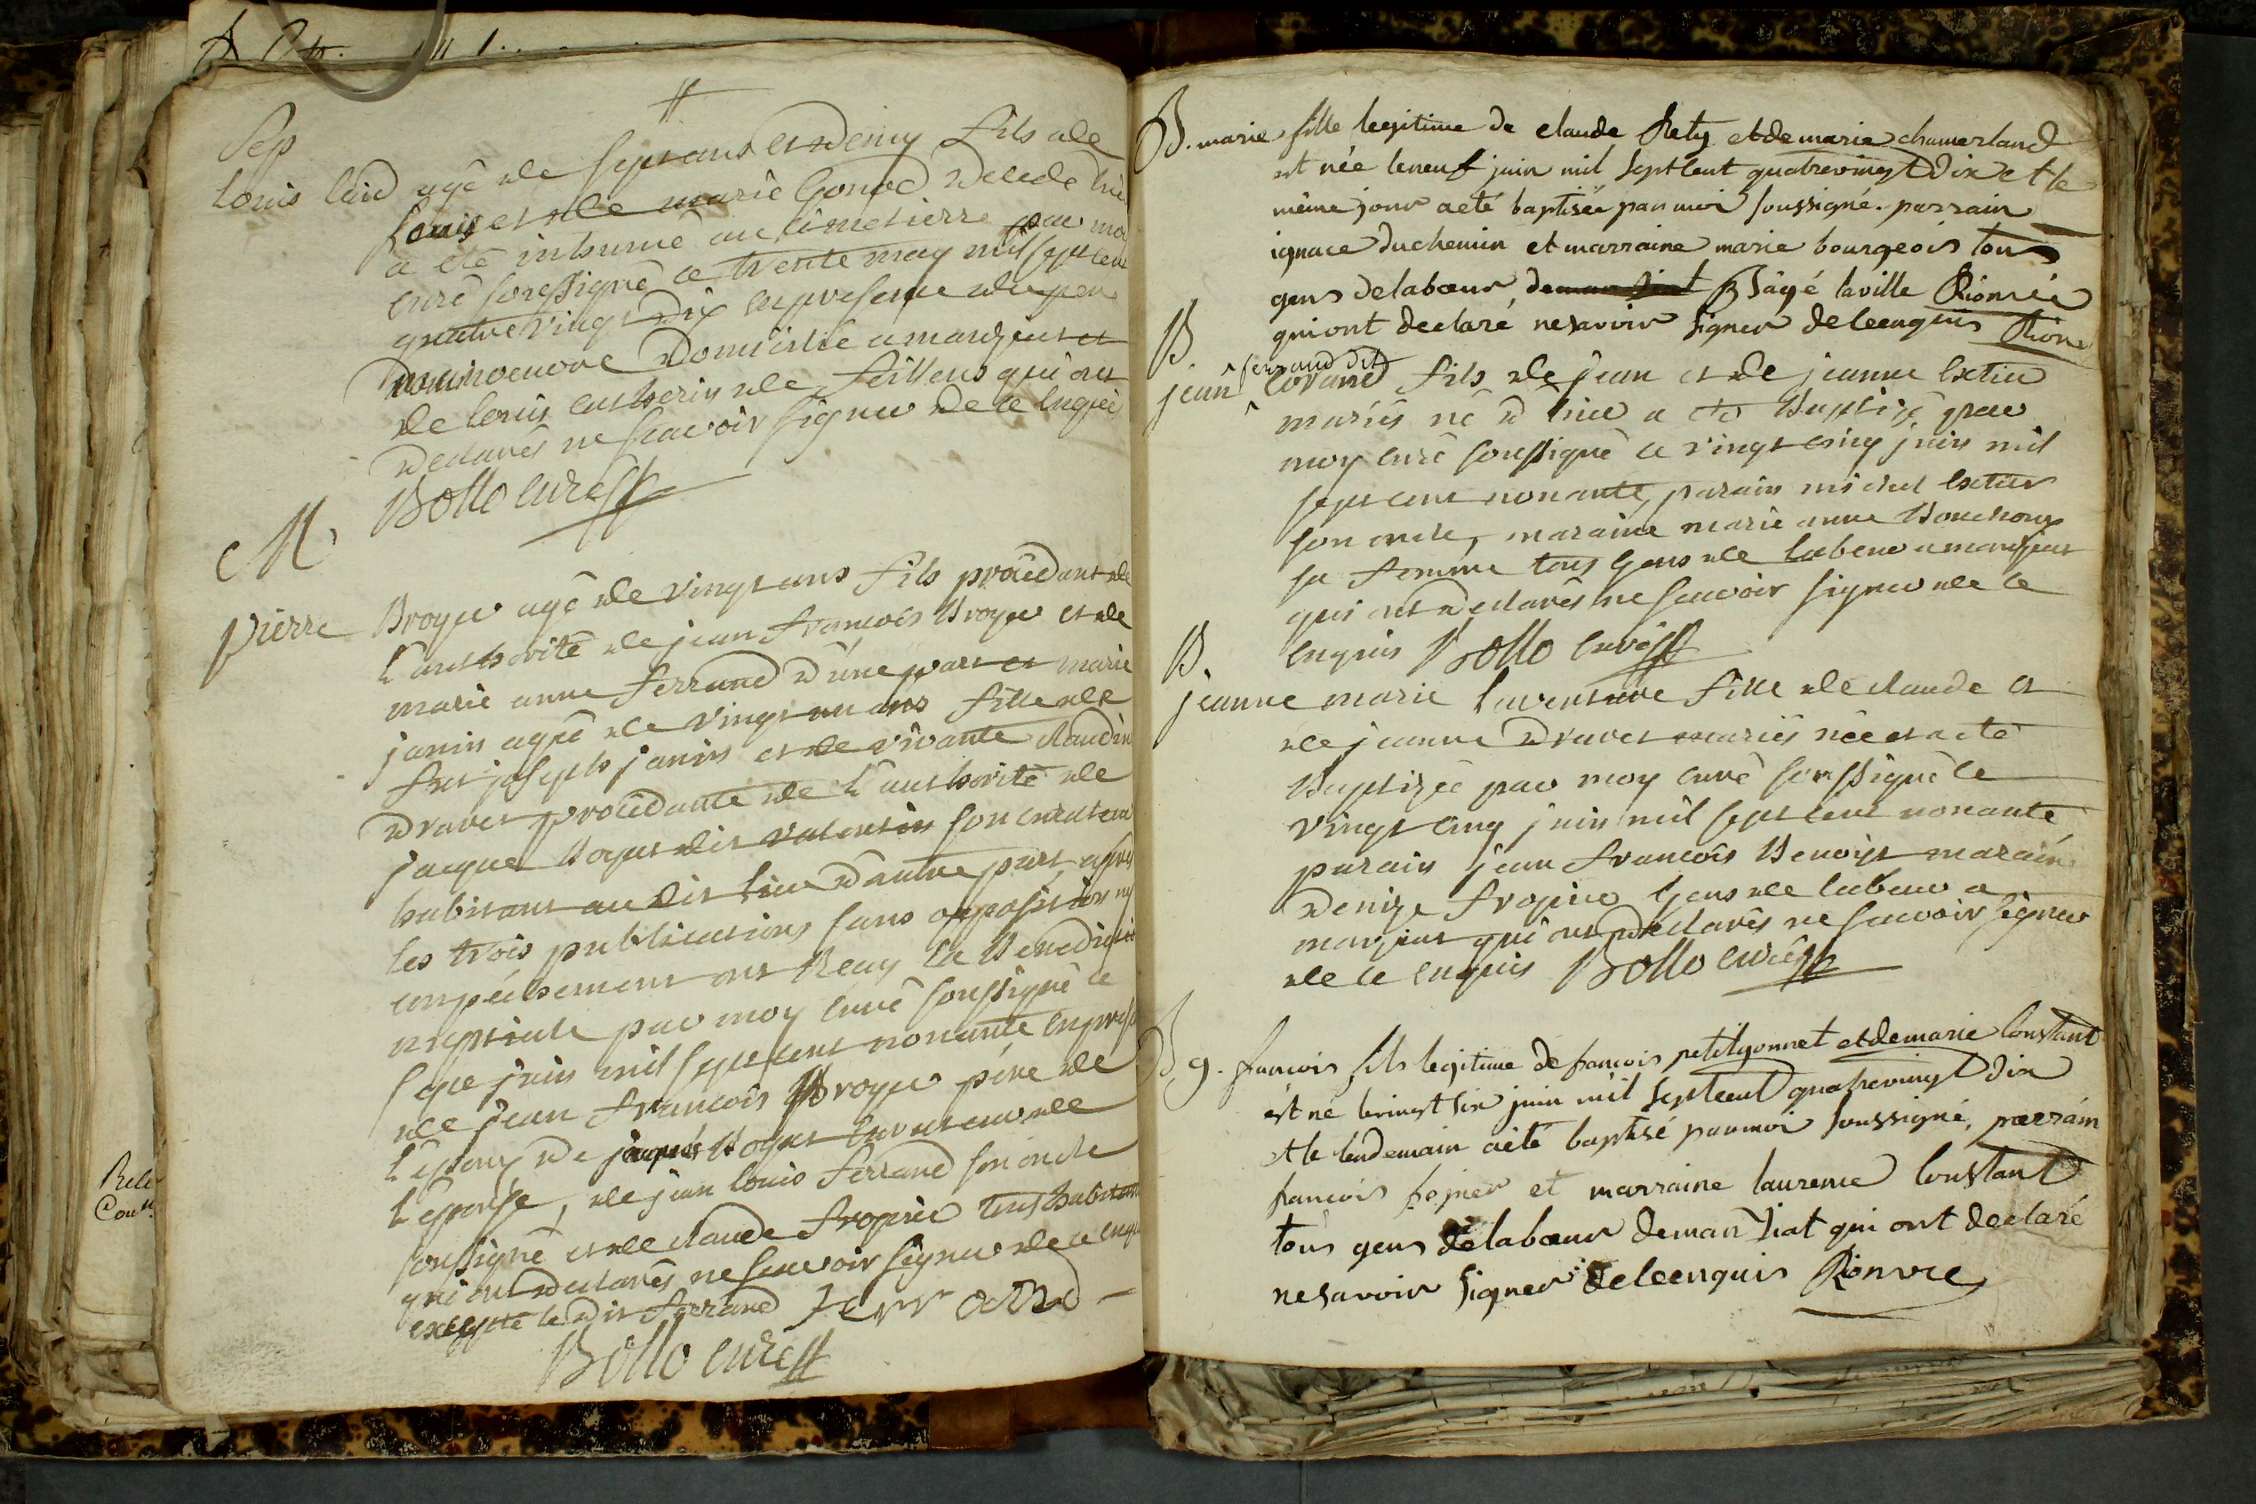 Sep
louis laid agé de sept ans et demy fils de
Louis et de marie Gonod decedé hier
a eté inhumé au cimetierre par moi
curé soussigné ce trente may mil sept cent
quatre vingt dix en presence de
domicilié a manziat et
de louis catherin de feillens qui ont
declarés ne scavoir signer de ce enquis
Bollo curé
M.
pierre Broyer agé de vingt ans fils procédant de
l'authorité de jean francois Broyer et de
marie anne ferrand d'une part et marie
janin agée de vingt un ans fille de
feu joseph janin et de vivante claudine
dravet procédante de l'authorité de
jacque Boyat dit valentin son curateur
habitant au dit lieu d'autre part, après
les trois publications sans opposition ny
empéchement ont Reçu la Benediction
nuptiale par moy curé soussigné ce
sept juin mil sept cent nonante en presence
de jean francois Broyer pére de
l'epoux de jaques Boyat curateur de
l'epouse, de jean louis ferrand son oncle
soussigné et de claude fropier tous habitants
qui ont declarés ne scavoir signer de ce enquis
excepté le dit ferrand ferrand
Bollo curé
B. marie fille legitime de claude Rety et de marie chamerland
est née le neuf juin mil sept cent quatrevingt dix et le
même jour a eté baptisée par moi soussigné. parrain
ignace duchemin et marraine marie bourgeois tous
gens de labœur, Bâgé la ville
qui ont declaré ne savoir signer de ce enquis
B.
ferrand dit
jean lorand fils de jean et de jeanne
mariés né d'hier a été Baptizé par
moy curé soussigné ce vingt cinq juin mil
sept cent nonante, parain michel
son oncle, maraine marie anne
sa femme tous gens de labeur a manziat
qui ont declarés ne scavoir signer de ce
enquis Bollo curé
B.
jeanne marie laventure fille de claude et
de jeanne dravet mariés née et a eté
Baptizée par moy curé soussigné ce
vingt cinq juin mil sept cent nonante
parain jean francois Benoist maraine
denize fropier gens de labeur a
manziat qui ont declarés ne scavoir signer
de ce enquis Bollo curé
B, 9. francois fils legitime de francois petityonnet et de marie Constant
est né le vingt six juin mil sept cent quatrevingt dix
et le lendemain a été baptisé par moi soussigné, parrain
francois et marraine laurence Constant
tous gens de labœur de manziat qui ont declaré
ne savoir signer de ce enquis